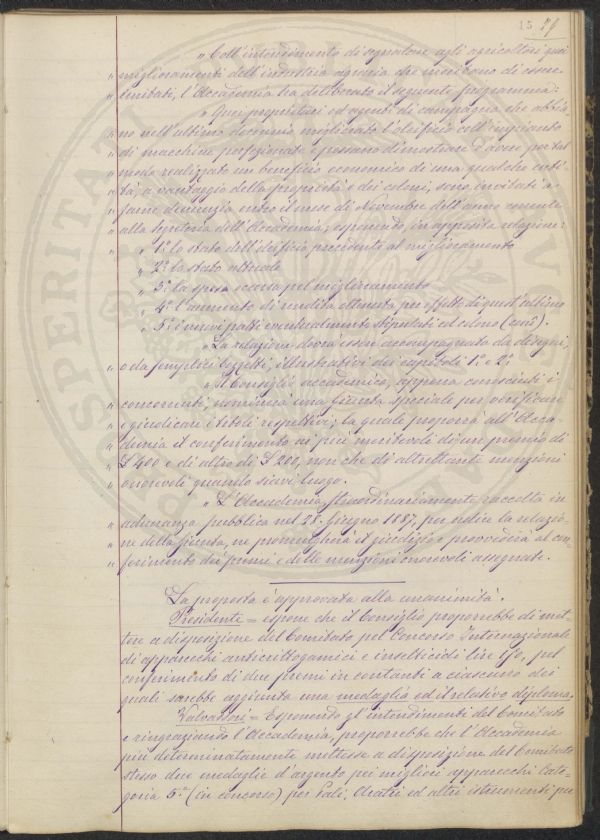 15 29
" Coll'intendimento di segnalare agli agricoltori quei
" miglioramenti dell'industria agraria che meritano di essere
" imitati, l'Accademia ha deliberato il seguente programma:
" Quei proprietari od agenti di campagna che abbia-
" no nell'ultimo decennio migliorato l'oleificio coll'impianto
" di macchine perfezionate e possano dimostrare d'avere per tal
" modo realizzato un beneficio economico di una qualche enti-
" tà, a vantaggio della proprietà e dei coloni, sono invitati a
" farne denunzia entro il mese di Novembre dell'anno corrente
" alla segreteria dell'Accademia, esponendo, in apposita relazione:
" 1.° lo stato dell'oleificio precedente al miglioramento
" 2.° lo stato attuale
" 3.° la spesa occorsa pel miglioramento
" 4.° l'aumento di rendita ottenuta per effetto di quest'ultimo
" 5.° i nuovi patti eventualmente stipulati col colono
" La relazione dovrà essere accompagnata da disegni,
" o da semplici bozzetti, illustrativi dei capitoli 1.° e 2.°
" Il Consiglio accademico, appena conosciuti i
" concorrenti, nominerà una Giunta speciale per verificare
" e giudicare i titoli rispettivi; la quale proporrà all'Acca-
" demia il conferimento ai più meritevoli di un premio di
" £ 400 e di altro di £ 200, non che di altrettante menzioni
" onorevoli quando siavi luogo.
" L'Accademia straordinariamente raccolta in
" adunanza pubblica nel 28. Giugno 1887, per udire la relazio-
" ne della Giunta, ne promulgherà il giudizio e provvederà al con-
" ferimento dei premi e delle menzioni onorevoli assegnate.
La proposta è approvata alla unanimità.
Presidente = espone che il Consiglio proporrebbe di met-
tere a disposizione del Comitato pel Concorso Internazionale
di apparecchi anticrittogamici e insetticidi lire 150, pel
conferimento di due premi in contanti a ciascuno dei
quali sarebbe aggiunta una medaglia ed il relativo diploma.
Valvassori = Esponendo gl'intendimenti del Comitato
e ringraziando l'Accademia, proporrebbe che l'Accademia
più determinatamente mettesse a disposizione del Comitato
stesso due medaglie d'argento pei migliori apparecchi Cate-
goria 5.ª (in concorso) per Pali, Aratri ed altri istrumenti per